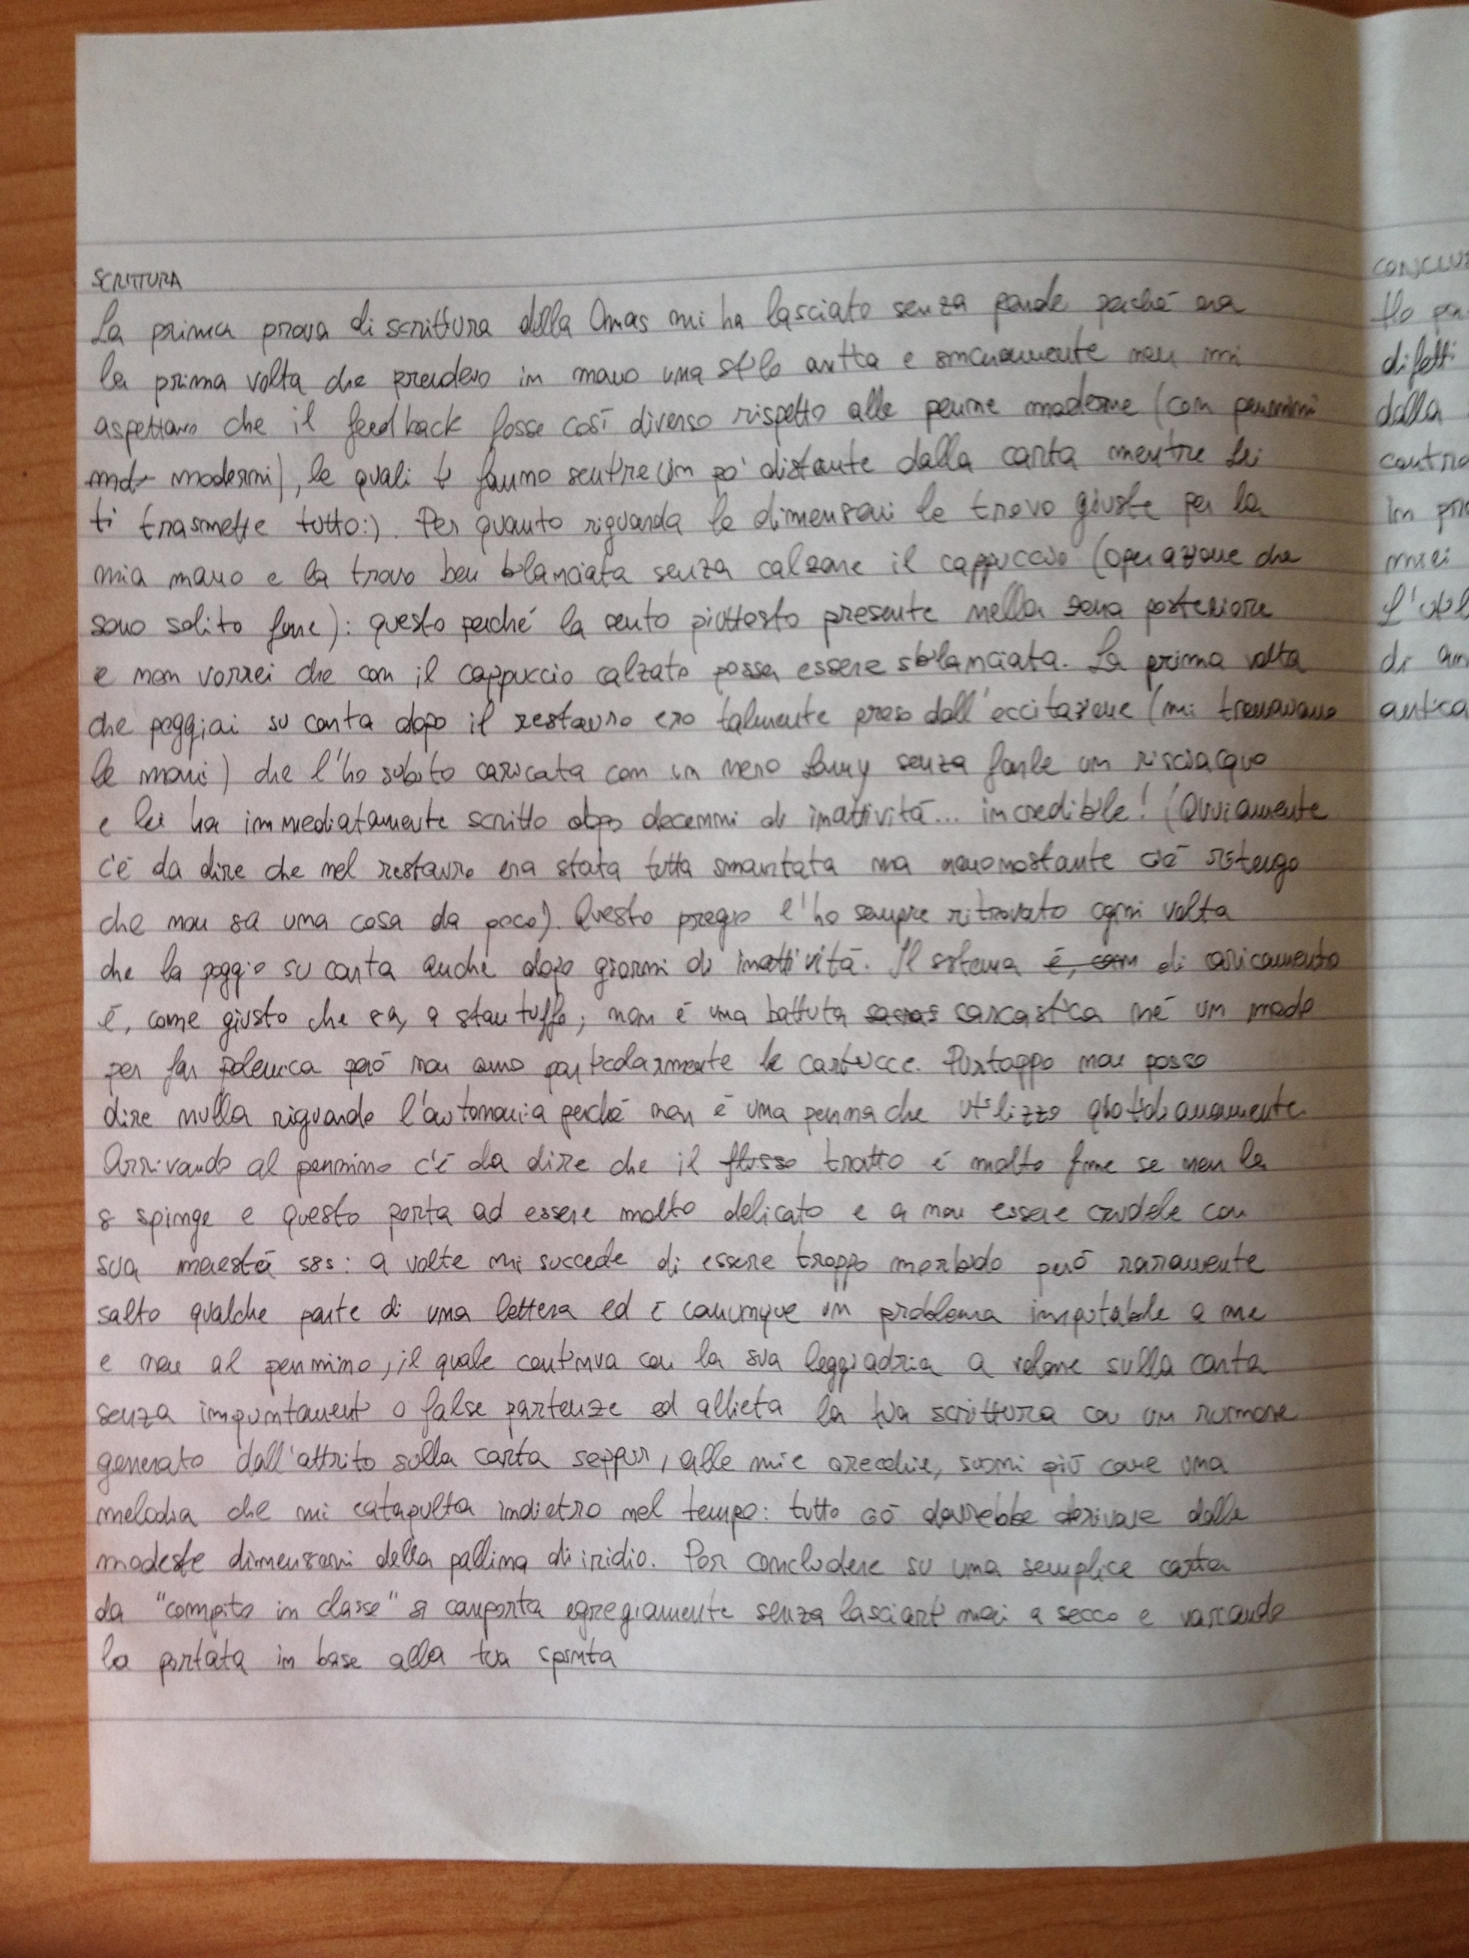 SCRITTURA
La prima prova di scrittura della Omas mi ha lasciato senza parole perché era
la prima volta che prendevo in mano una stilo antica e sinceramente non mi
aspettavo che il feedback fosse così diverso rispetto alle penne moderne (con pennini
moderni), le quali ti fanno sentire un po' distante dalla carta mentre lei
ti trasmette tutto:). Per quanto riguarda le dimensioni le trovo giuste per la
mia mano e la trovo ben bilanciata senza calzare il cappuccio (operazione che
sono solito fare): questo perché la sento piuttosto presente nella zona posteriore
e non vorrei che con il cappuccio calzato possa essere sbilanciata. La prima volta
che poggiai su carta dopo il restauro ero talmente preso dall'eccitazione (mi tremavano
le mani) che l'ho subito caricata con un nero Lamy senza farle un risciacquo
e lei ha immediatamente scritto dopo decenni di inattività... incredibile! (Ovviamente
c'è da dire che nel restauro era stata tutta smontata ma nonostante ciò ritengo
che non sia una cosa da poco). Questo pregio l'ho sempre ritrovato ogni volta
che la poggio su carta anche dopo giorni di inattività. Il sistema è, com di caricamento
è, come giusto che sia, a stantuffo; non è una battuta sarcastica né un modo
per far polemica però non amo particolarmente le cartucce. Purtroppo non posso
dire nulla riguardo l'autonomia perché non è una penna che utilizzo quotidianamente.
Arrivando al pennino c'è da dire che il flusso tratto è molto fine se non la
si spinge e questo porta ad essere molto delicato e a non essere crudele con
sua maestà 585: a volte mi succede di essere troppo morbido però raramente
salto qualche parte di una lettera ed è comunque un problema imputabile a me
e non al pennino, il quale continua con la sua leggiadria a volare sulla carta
senza impuntamenti o false partenze ed allieta la tua scrittura con un rumore
generato dall'attrito sulla carta seppur, alle mie orecchie, suoni più come una
melodia che mi catapulta indietro nel tempo: tutto ciò dovrebbe derivare dalle
modeste dimensioni della pallina di iridio. Per concludere su una semplice carta
da "compito in classe" si comporta egregiamente senza lasciarti mai a secco e variando
la portata in base alla tua spinta
Ho
difetti
dalla
in
miei
di
antica